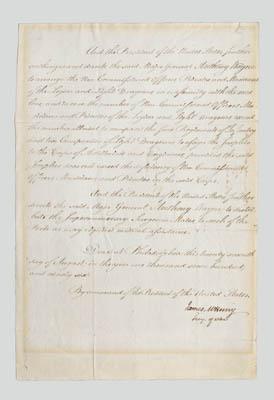 And the President of the United States further
authorizes and directs the said Major General Anthony Wayne
to arrange the Non Commissioned Officers, Privates and Musicians
of the Legion and Light Dragoons in conformity with the said
law, and in case the number of Non Commissioned Officers Mu-
sicians and Privates of the Legion and Light Dragoons exceed
the number allotted to compose the four Regiments of Infantry
and two Companies of Light Dragoons to assign the surplus
to the Corps of Artillerists and Engineers provided the said
surplus shall not exceed the deficiency of Non Commissioned
Officers Musicians and Privates in the said Corps.
And the President of the United States further
directs the said Major General Anthony Wayne to distri-
bute the Supernumerary Surgeons Mates to such of the
Posts as may require medical assistance.
Done at Philadelphia this twenty seventh
day of August in the year one thousand seven hundred
and ninety six.
By command of the President of the United States.
James McHenry
Secy. of War